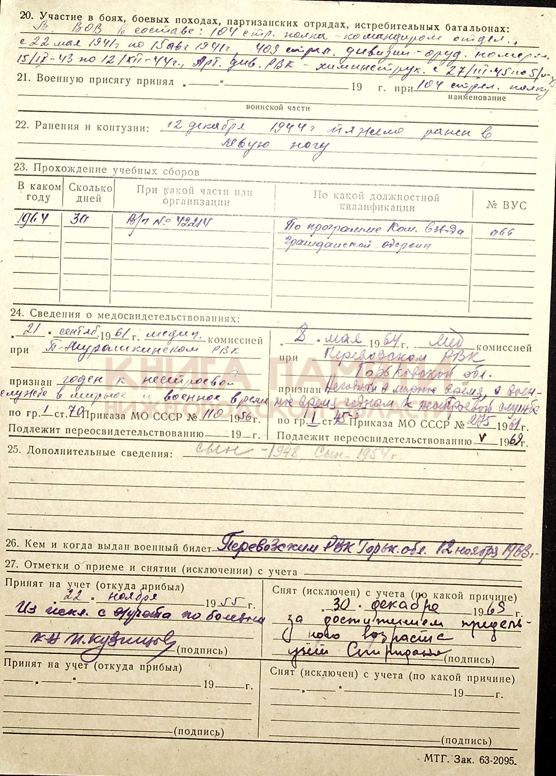 20. Участие в боях, боевых походах, партизанских отрядах, истребительных батальонах:
В ВОВ в составе: 104 стр. полка - командиром отдел.,
с 22 мая 1941 г по 15 авг 1941 г., 409 стрел. дивизии - оруд. номером
15/VI-43 по 12/XII-44 г., Арт. див. РВК - химинструк. с 27/III-45 по
21. Военную присягу принял „ — " 19 г. при 104 стрел. полку
наименование
воинской части
22. Ранения и контузии: 12 декабря 1944 г тяжело ранен в
левую ногу
23. Прохождение учебных сборов
В каком году
Сколько дней
При какой части или организации
По какой должностной квалификации
№ ВУС
1964
30
В/ч № 42214
По программе Ком. взв-да
гражданской обороны
24. Сведения о медосвидетельствованиях:
„ 21 " сентяб 1961 г. медиц. комиссией
при П-Мурашкинском РВК
признан годен к нестроевой
службе в мирное и военное время
по гр. 1 ст. Приказа МО СССР № 110 1956 г.
Подлежит переосвидетельствованию — г.
„ 8 " мая 1964 г. мед комиссией
при Перевозском РВК
Горьковской обл.
признан негоден в мирное время, в воен-
ное время годен к нестроевой службе
по гр. 1 ст. Приказа МО СССР № 275 г.
Подлежит переосвидетельствованию V 1969 г.
КНИГА ПАМЯТИ
25. Дополнительные сведения: сын - 1948 сын - 1954 г
26. Кем и когда выдан военный билет Перевозским РВК Горьк. обл. 12 ноября 1963 г.
27. Отметки о приеме и снятии (исключении) с учета
Принят на учет (откуда прибыл)
„ 22 " ноября 1955 г.
Из искл. с учета по болезни
к-н Кузнецов
(подпись)
Снят (исключен) с учета (по какой причине)
„ 30 " декабря 1969 г.
за достижением предель-
ного возраста с
учёта
(подпись)
Принят на учет (откуда прибыл)
„ — " 19 — г.
(подпись)
Снят (исключен) с учета (по какой причине)
„ — " 19 — г.
(подпись)
МТГ. Зак. 63-2095.